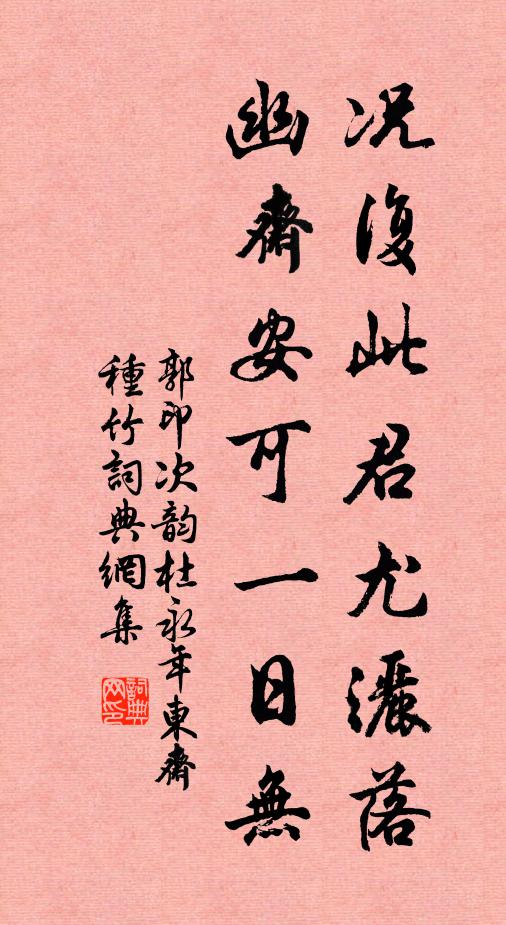 况復此君尤灑落
幽齋安可一日無
郭印次韵杜永年東齋
種竹詞典網集
詞典網印